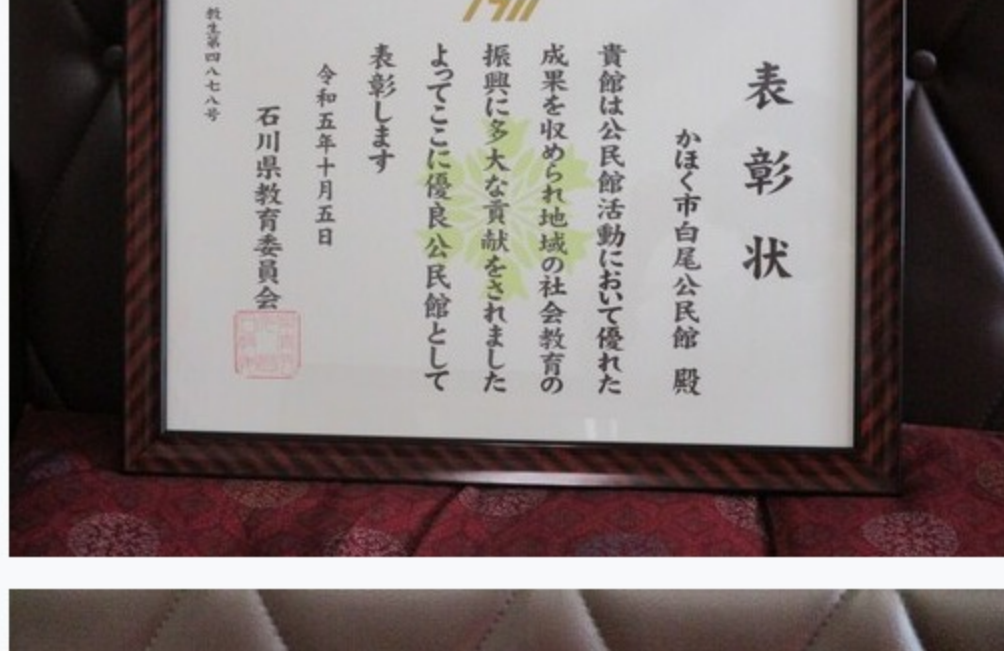 表彰状
かほく市白尾公民館 殿
貴館は公民館活動において優れた
成果を収められ地域の社会教育の
振興に多大な貢献をされました
よってここに優良公民館として
表彰します
令和五年十月五日
石川県教育委員会
教生第四八七八号